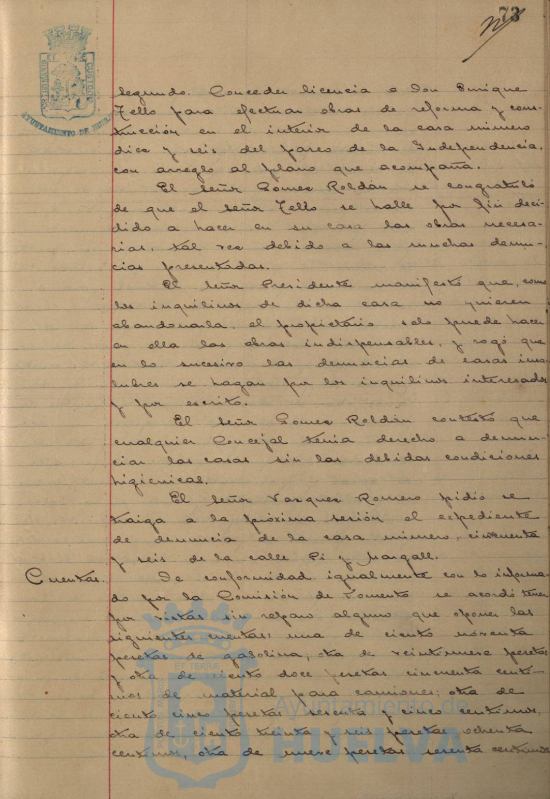 73
AYUNTAMIENTO DE HUELVA
segundo. Conceder licencia a Don Enrique
Tello para efectuar obras de reforma y cons-
trucción en el interior de la casa número
diez y seis del paseo de la Independencia,
con arreglo al plano que acompaña.
El señor Gomez Roldán se congratuló
de que el señor Tello se halle por fin deci-
dido a hacer en su casa las obras necesa-
rias, tal vez debido a las muchas denun-
cias presentadas.
El señor Presidente manifestó que, como
los inquilinos de dicha casa no quieren
abandonarla, el propietario solo puede hacer
en ella las obras indispensables, y rogó que
en lo sucesivo las denuncias de casas insa-
lubres se hagan por los inquilinos interesados
y por escrito.
El señor Gomez Roldán contestó que
cualquier Concejal tenia derecho a denun-
ciar las casas sin las debidas condiciones
higienicas.
El señor Vazquez Romero pidió se
traiga a la próxima sesión el expediente
de denuncia de la casa número, cincuenta
y seis de la calle Pi y Margall.
Cuentas. De conformidad igualmente con lo informa-
do por la Comisión de Fomento se acordó tener
por vistas sin reparo alguno que oponer las
siguientes cuentas: una de ciento noventa
pesetas de gasolina, otra de veintinueve pesetas
y otra de ciento doce pesetas cincuenta centi-
mos de material para camiones; otra de
ciento cinco pesetas sesenta y cinco centimos,
otra de ciento treinta y seis pesetas ochenta
centimos, otra de nueve pesetas sesenta centimos
Ayuntamiento de
HUELVA